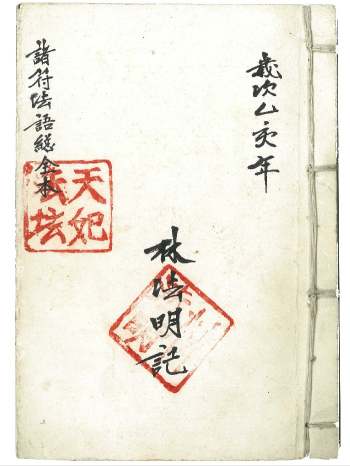 歲次乙亥年
林法明記
諸符法語總全本
天妃
玄坛